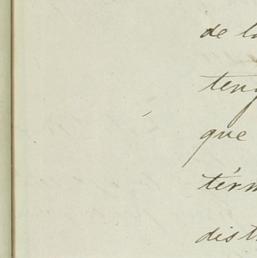 de l
ten
que
térm
dist